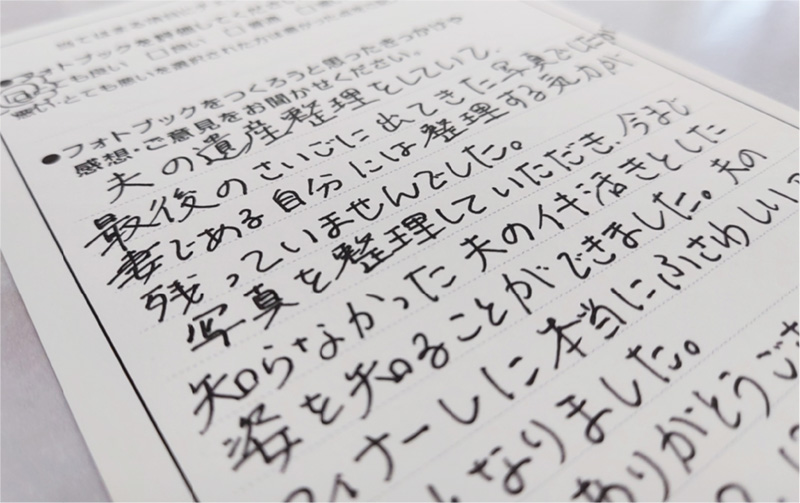 ●フォトブックを評価してくださ
とても良い □良い □普通
悪い、とても悪いを選択された方は
●フォトブックをつくろうと思ったきっかけや
感想・ご意見をお聞かせください。
夫の遺産整理をしていて、
最後のさいごに出てきた写真でしたが
妻である自分には整理する気力が
残っていませんでした。
写真を整理していただき、今まで
知らなかった夫のイキ活きとした
姿を知ることができました。夫の
フィナーレに本当にふさわしい
なりました。
ありがとうござ